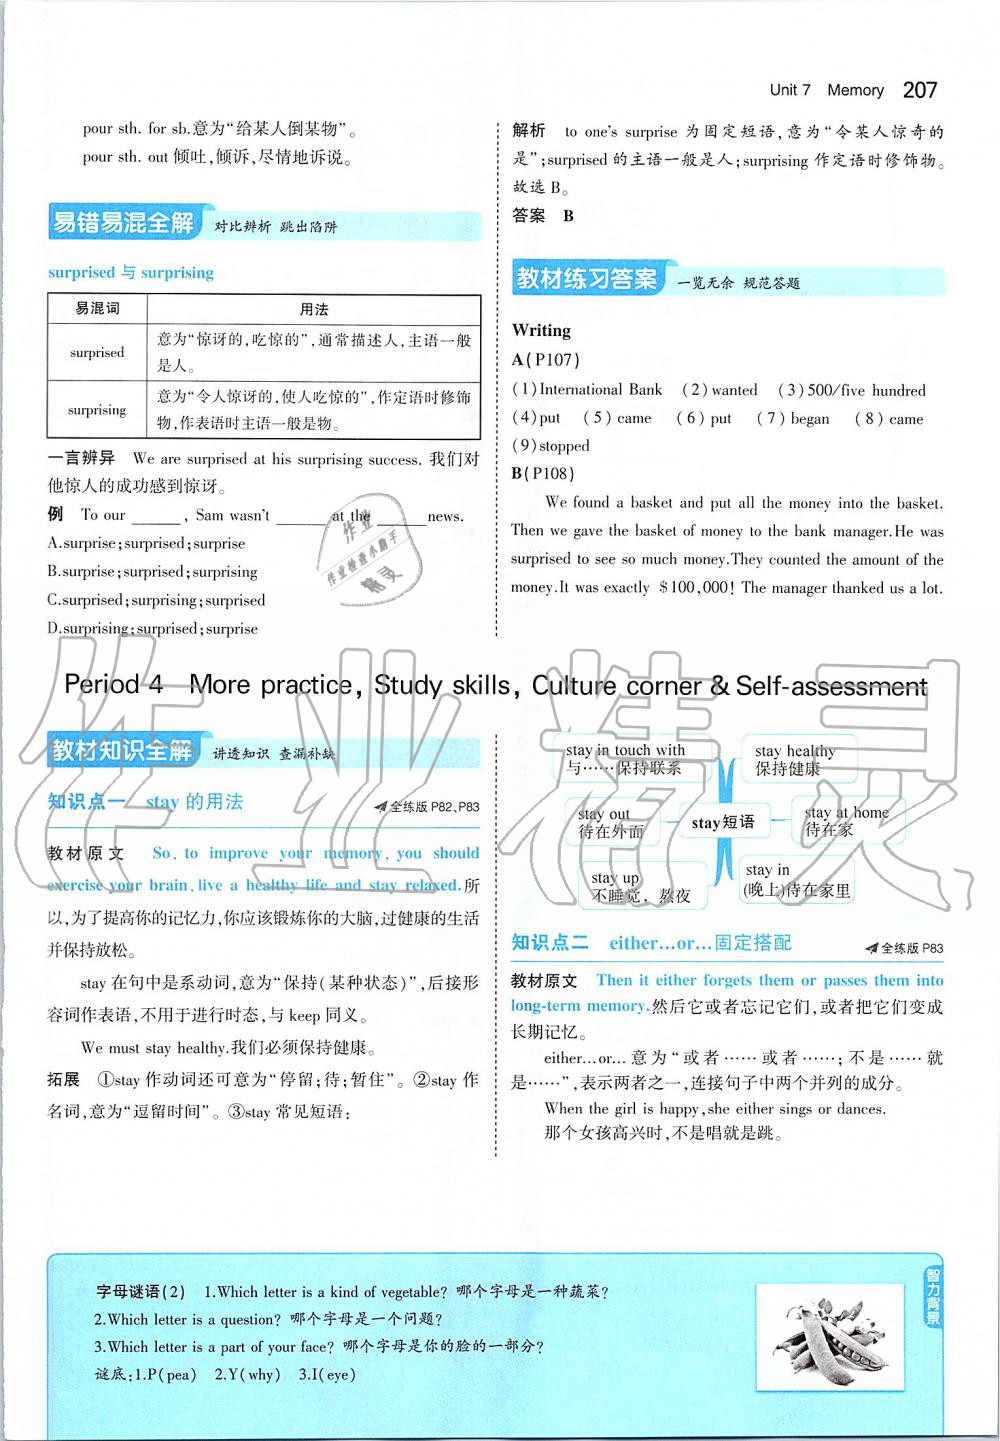 Unit 7 Memory 207
pour sth. for sb.意为“给某人倒某物”。
pour sth. out 倾吐,倾诉,尽情地诉说。
易错易混全解 对比辨析 跳出陷阱
surprised 与 surprising
易混词 用法
surprised 意为“惊讶的,吃惊的”,通常描述人,主语一般
是人。
surprising 意为“令人惊讶的,使人吃惊的”,作定语时修饰
物,作表语时主语一般是物。
一言辨异 We are surprised at his surprising success. 我们对
他惊人的成功感到惊讶。
例 To our ______, Sam wasn't ______ at the ______ news.
A.surprise;surprised;surprise
B.surprise;surprised;surprising
C.surprised;surprising;surprised
D.surprising;surprised;surprise
解析 to one's surprise 为固定短语,意为“令某人惊奇的
是”;surprised 的主语一般是人;surprising 作定语时修饰物。
故选 B。
答案 B
教材练习答案 一览无余 规范答题
Writing
A(P107)
(1)International Bank (2)wanted (3)500/five hundred
(4)put (5)came (6)put (7)began (8)came
(9)stopped
B(P108)
We found a basket and put all the money into the basket.
Then we gave the basket of money to the bank manager.He was
surprised to see so much money.They counted the amount of the
money.It was exactly $100,000! The manager thanked us a lot.
作业
作业检查小助手
精灵
作业精灵
Period 4 More practice, Study skills, Culture corner & Self-assessment
教材知识全解 讲透知识 查漏补缺
知识点一 stay 的用法 全练版 P82、P83
教材原文 So, to improve your memory, you should
exercise your brain,live a healthy life and stay relaxed.所
以,为了提高你的记忆力,你应该锻炼你的大脑,过健康的生活
并保持放松。
stay 在句中是系动词,意为“保持(某种状态)”,后接形
容词作表语,不用于进行时态,与 keep 同义。
We must stay healthy.我们必须保持健康。
拓展 ①stay 作动词还可意为“停留;待;暂住”。②stay 作
名词,意为“逗留时间”。③stay 常见短语:
stay in touch with
与……保持联系
stay healthy
保持健康
stay out
待在外面
stay短语
stay at home
待在家
stay up
不睡觉，熬夜
stay in
(晚上)待在家里
知识点二 either…or…固定搭配 全练版 P83
教材原文 Then it either forgets them or passes them into
long-term memory.然后它或者忘记它们,或者把它们变成
长期记忆。
either…or…意为“或者……或者……;不是……就
是……”,表示两者之一,连接句子中两个并列的成分。
When the girl is happy,she either sings or dances.
那个女孩高兴时,不是唱就是跳。
字母谜语(2) 1.Which letter is a kind of vegetable? 哪个字母是一种蔬菜?
2.Which letter is a question? 哪个字母是一个问题?
3.Which letter is a part of your face? 哪个字母是你的脸的一部分?
谜底:1.P(pea) 2.Y(why) 3.I(eye)
智力背景